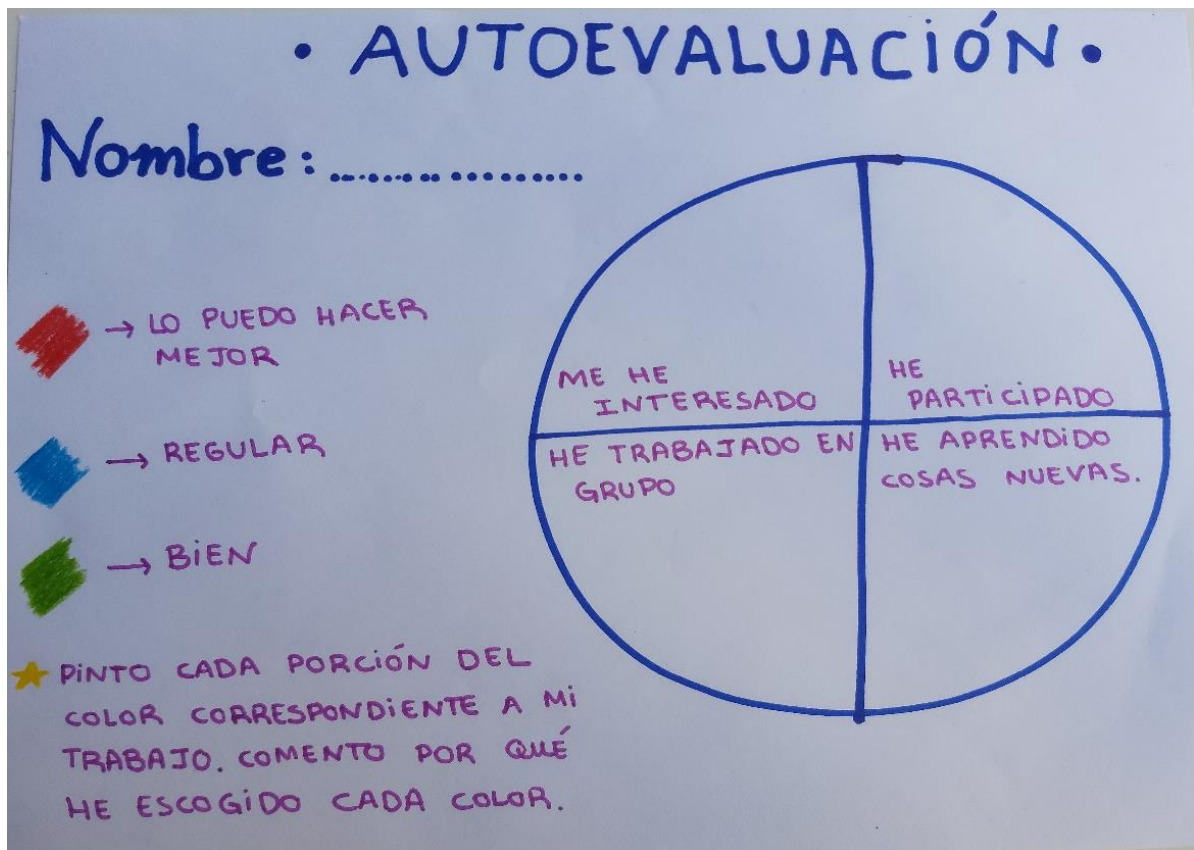 • AUTOEVALUACIÓN •
Nombre: ................
→ LO PUEDO HACER
MEJOR
→ REGULAR
→ BIEN
PINTO CADA PORCIÓN DEL
COLOR CORRESPONDIENTE A MI
TRABAJO. COMENTO POR QUÉ
HE ESCOGIDO CADA COLOR.
ME HE
INTERESADO
HE
PARTICIPADO
HE TRABAJADO EN
GRUPO
HE APRENDIDO
COSAS NUEVAS.